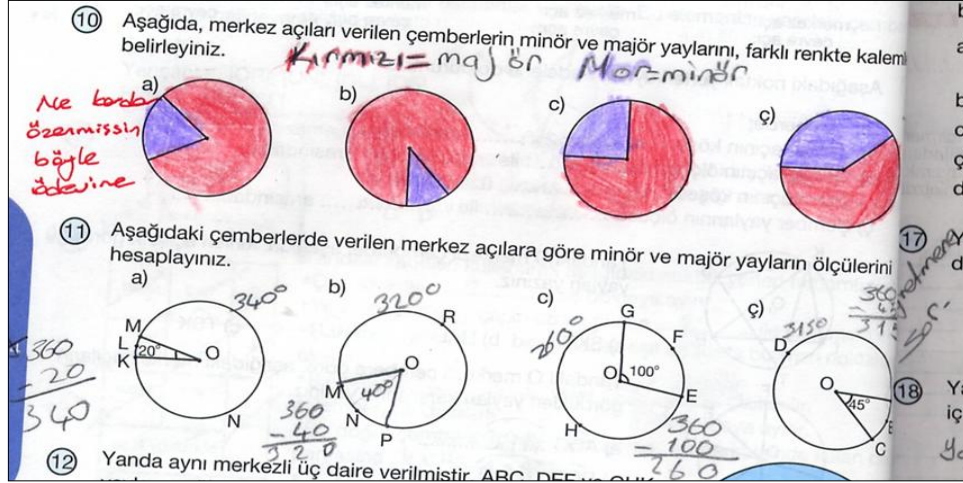 10 Aşağıda, merkez açıları verilen çemberlerin minör ve majör yaylarını, farklı renkte kaleml
belirleyiniz.
Kırmızı=majör Mor=minör
a)
b)
c)
ç)
Ne
böyle
ödevine
11 Aşağıdaki çemberlerde verilen merkez açılara göre minör ve majör yayların ölçülerini
hesaplayınız.
a)
340°
M
L
K
20°
O
N
360
- 20
340
b)
320°
R
O
M
40°
N
P
360
- 40
320
c)
260°
G
F
O
100°
E
H
360
- 100
260
ç)
315°
D
O
45°
C
17
18
12 Yanda aynı merkezli üç daire verilmiştir